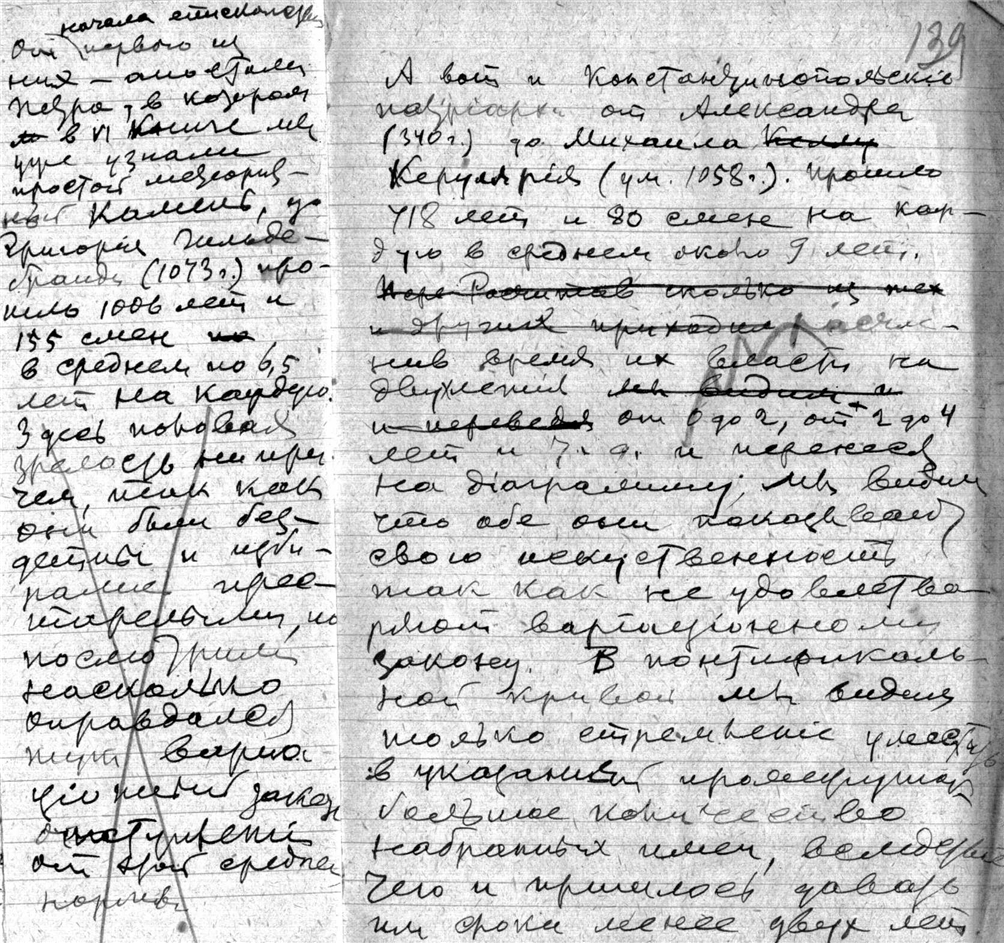 начала епископства
От первого из
них – апостола
Петра, в котором
в VI книге мы
уже узнали
простой метеорит-
ный Камень, до
Григория Гильде-
бранда (1073 г.) про-
шло 1006 лет и
155 смен
в среднем по 6,5
лет на каждую.
Здесь половая
зрелость ни при
чем, так как
они были без-
детны и изби-
рались прес-
тарелыми, но
посмотрим
насколько
оправдался
тут вариа-
ціонный закон
отступленій
от этой средней
нормы.
139
А вот и Константинопольскіе
патріархи от Александра
(340 г.) до Михаила
Керуларія (ум. 1058 г.). Прошло
718 лет и 80 смен на каж-
дую в среднем около 9 лет.
сколько из них
и других приходил расчле-
нив время их власти на
движения мы видим и
и переведя от 0 до 2, от + 2 до 4
лет и т. д. и перенеся
на діаграмму, мы видим
что обе они показывают
свою искуственность
так как не удовлетво-
ряют варіаціонному
закону. В понтификаль-
ной кривой мы видим
только стремленіе уместить
в указанный промежуток
большое количество
набранных имен, вследствіе
чего и пришлось давать
им сроки менее двух лет.